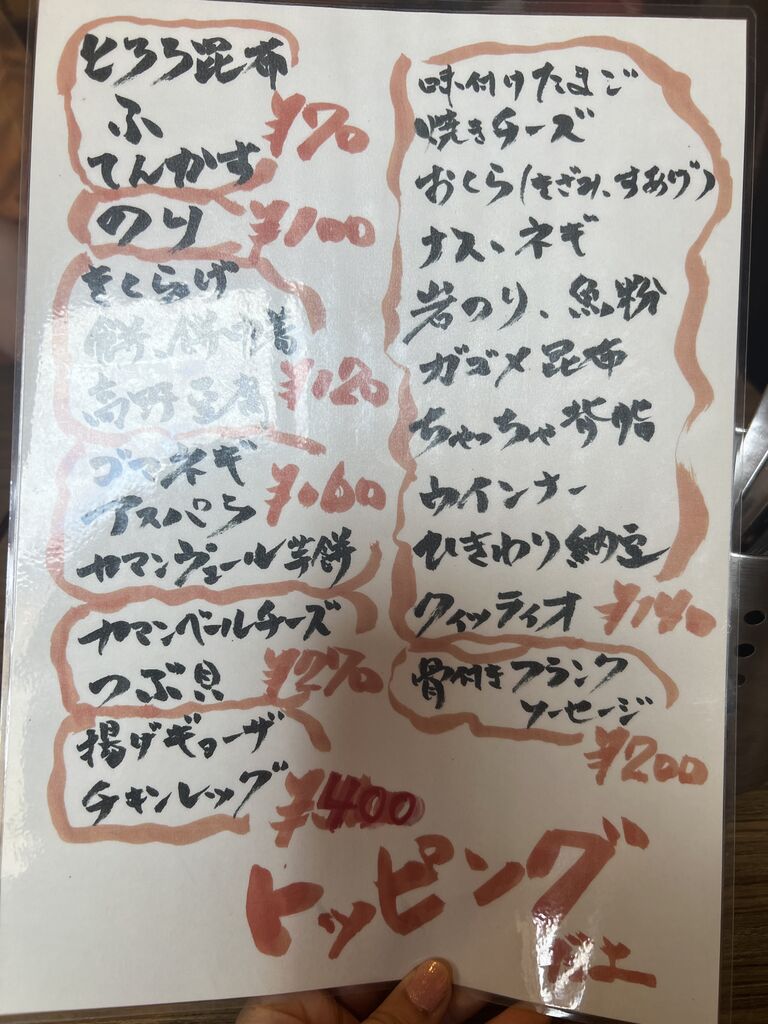 とろろ昆布
ふ
てんかす
¥70
のり ¥100
きくらげ
餅、餅巾着
高野豆腐 ¥120
ゴマネギ
アスパラ ¥160
カマンヴェール芋餅
カマンベールチーズ
つぶ貝 ¥270
揚げギョーザ
チキンレッグ ¥400
味付けたまご
焼きチーズ
おくら(きざみ、すあげ)
ナス、ネギ
岩のり、魚粉
ガゴメ昆布
ちゃっちゃ背脂
ウインナー
ひきわり納豆
クィッティオ ¥140
骨付きフランク
ソーセージ
¥200
トッピング